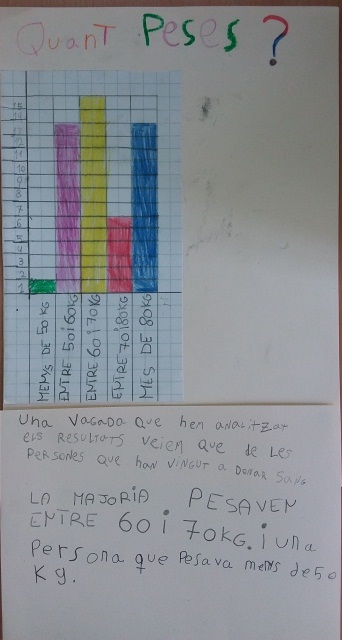 QuanT Peses?
15
14
13
12
11
10
9
8
7
6
5
4
3
2
1
MENYS DE 50 KG
ENTRE 50 i 60KG
ENTRE 60 i 70KG
ENTRE 70 i 80KG
MES DE 80KG
Una VAGADA QUE hem analitzat
els RESULTATS VEIEM QUE DE LES
PERSONES QUE han VINGUT A DONAR SANG
LA MAJORIA PESAVEN
ENTRE 60 i 70KG. i una
Persona que Pesava menys de 50
Kg.